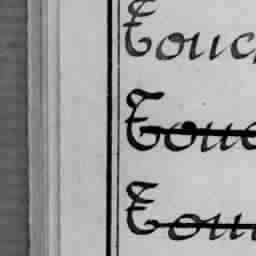 Touc
Touc
Tou